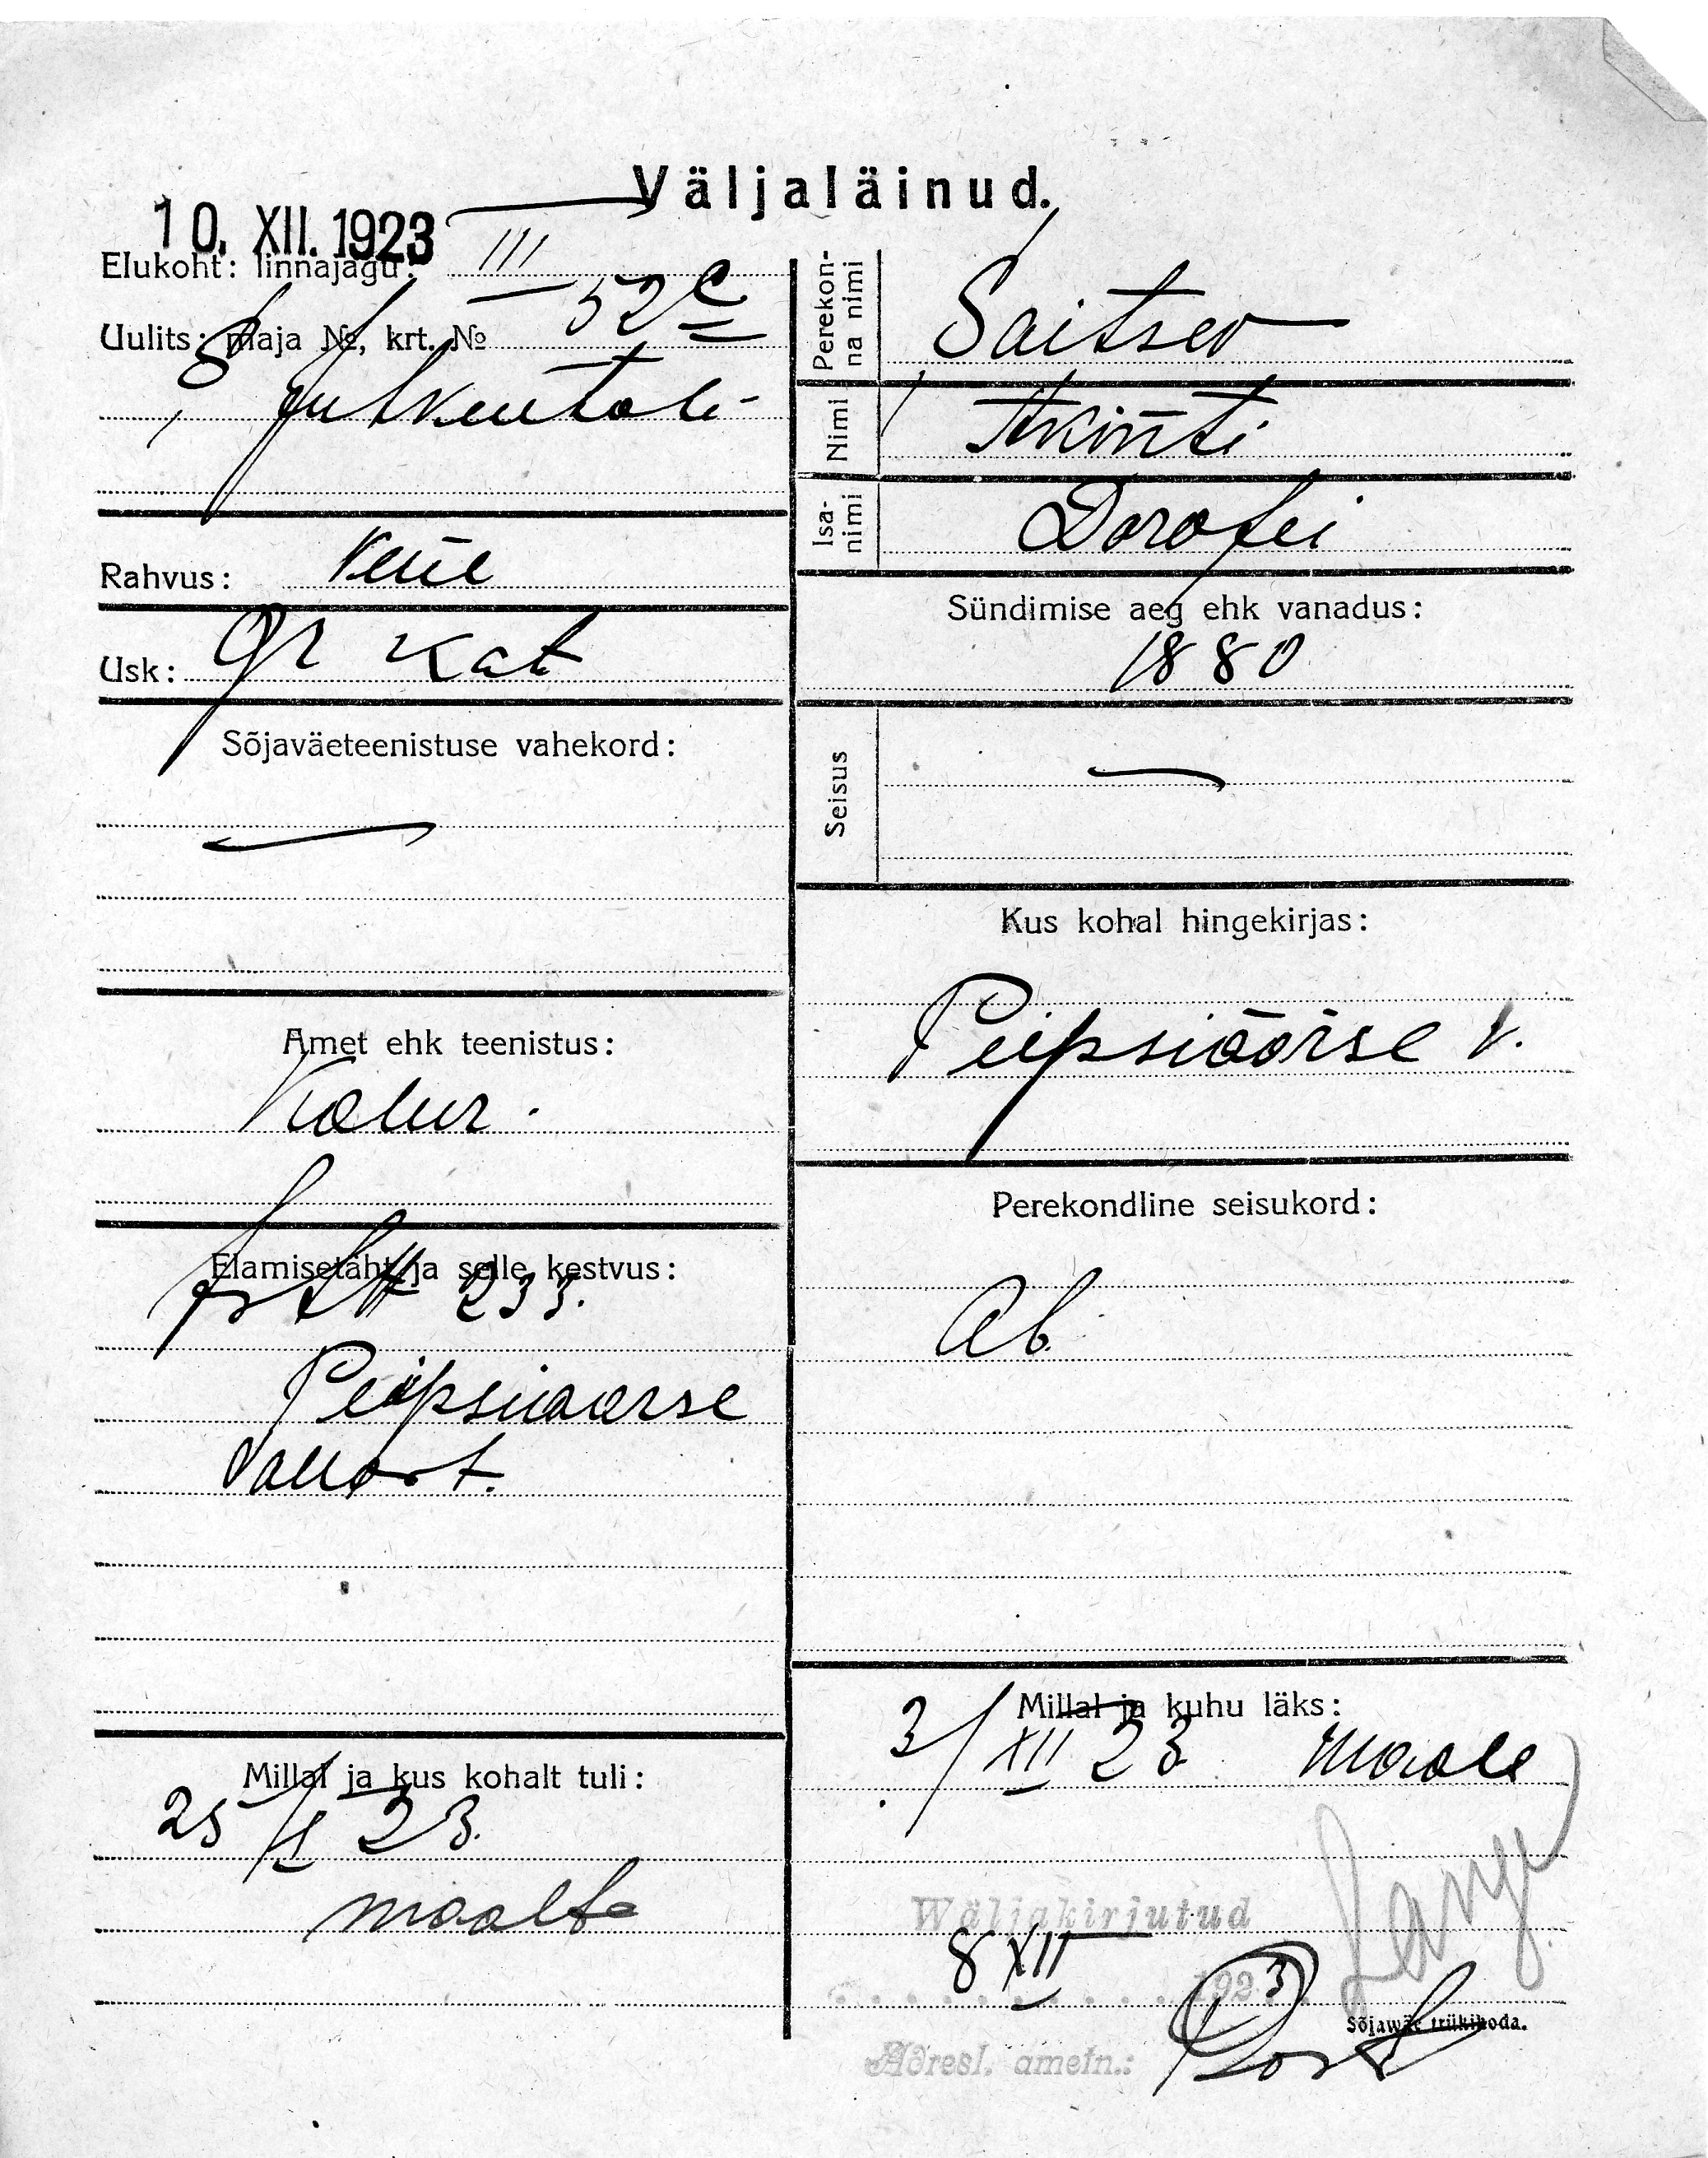 Väljaläinud.
10. XII. 1923
Elukoht: linnajagu: III
Uulits: maja №, krt. № 52 c
Rahvus: vene
Usk: gr kat
Sõjaväeteenistuse vahekord:
—
Amet ehk teenistus:
Kalur.
Elamisetäht ja selle kestvus:
233.
Peipsiäärse
Perekonna nimi
Saitsev
Nimi
Isanimi
Dorofei
Sündimise aeg ehk vanadus:
1880
Seisus
—
Kus kohal hingekirjas:
Peipsiäärse v.
Perekondline seisukord:
Ab.
Millal ja kus kohalt tuli:
23.
maalt
Millal ja kuhu läks:
3/XII 23 maale
Wäljakirjutud
8 XII 1923
Sõjawäe trükikoda.
Adresl. ametn.: